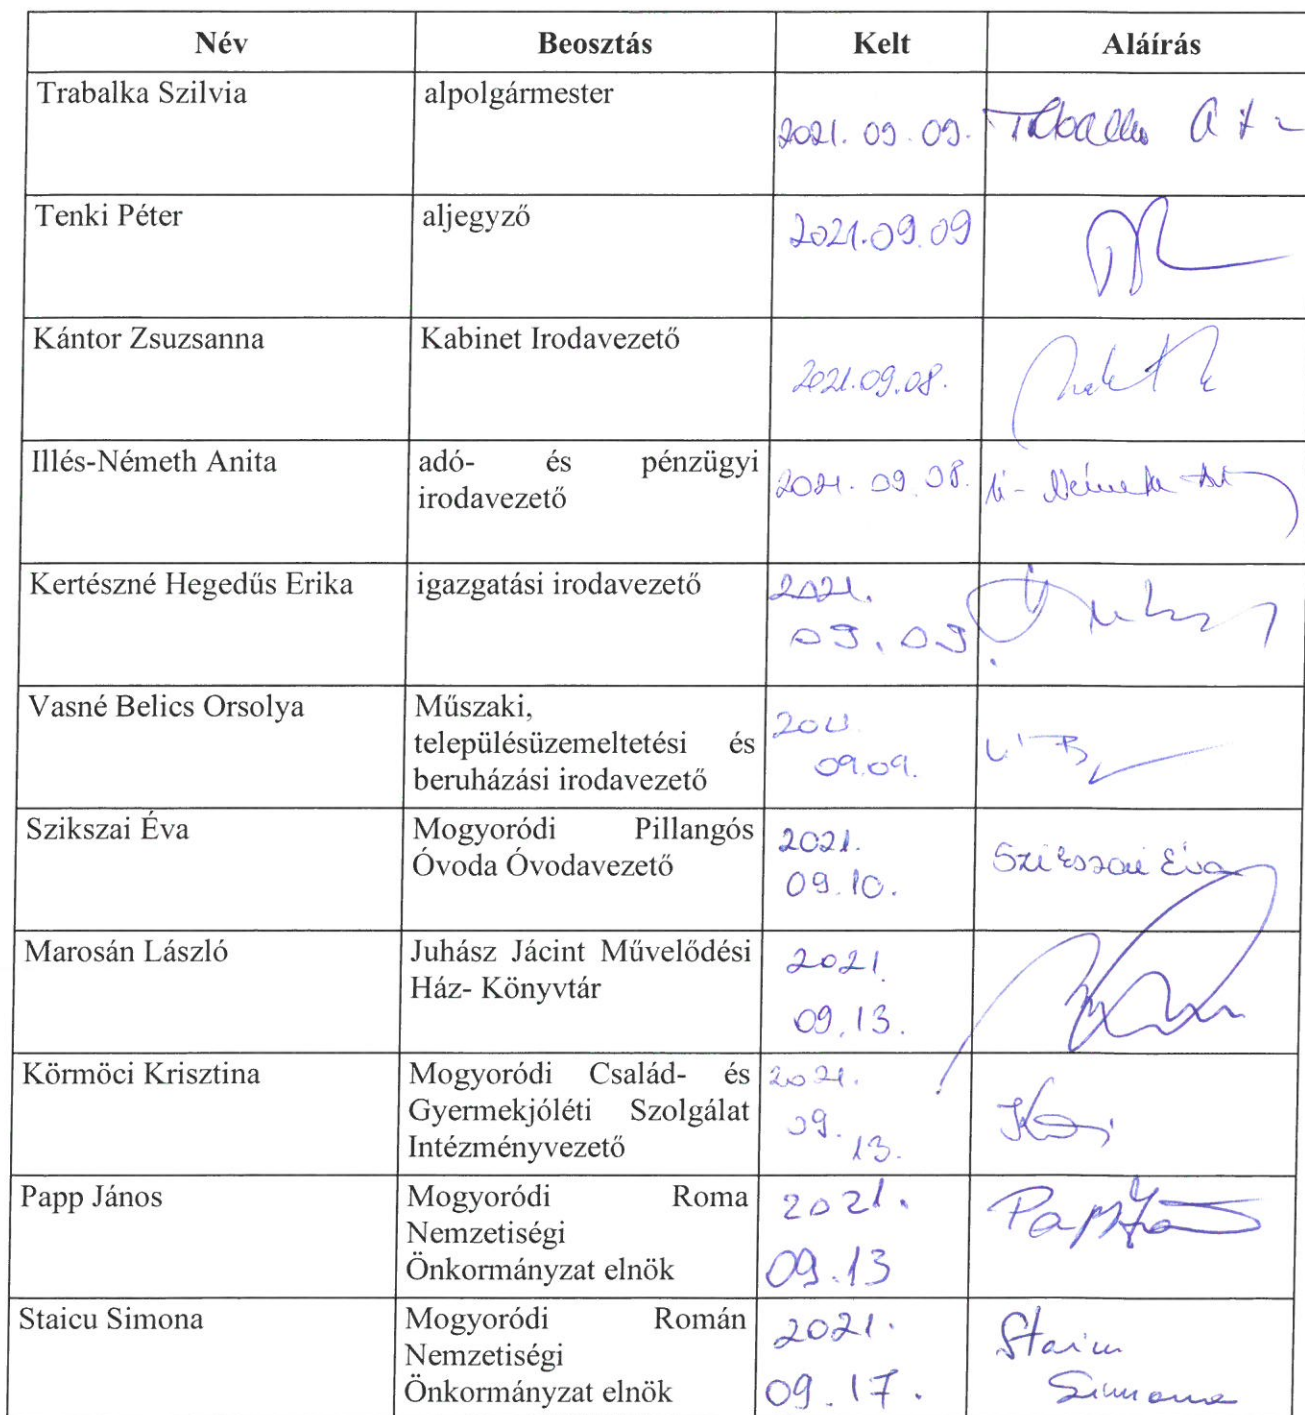 Név Beosztás Kelt Aláírás
Trabalka Szilvia alpolgármester
2021. 09. 09.
Tenki Péter aljegyző
2021.09.09
Kántor Zsuzsanna Kabinet Irodavezető
2021.09.08.
Illés-Németh Anita adó- és pénzügyi
irodavezető
2021. 09. 08.
Kertészné Hegedűs Erika igazgatási irodavezető
2021.
09.09.
Vasné Belics Orsolya Műszaki,
településüzemeltetési és
beruházási irodavezető
2021.
09.09.
Szikszai Éva Mogyoródi Pillangós
Óvoda Óvodavezető
2021.
09.10.
Szikszai Éva
Marosán László Juhász Jácint Művelődési
Ház- Könyvtár
2021.
09.13.
Körmöci Krisztina Mogyoródi Család- és
Gyermekjóléti Szolgálat
Intézményvezető
2021.
09.
13.
Papp János Mogyoródi Roma
Nemzetiségi
Önkormányzat elnök
2021.
09.13
Papp
Staicu Simona Mogyoródi Román
Nemzetiségi
Önkormányzat elnök
2021.
09.17.
Staicu
Simona